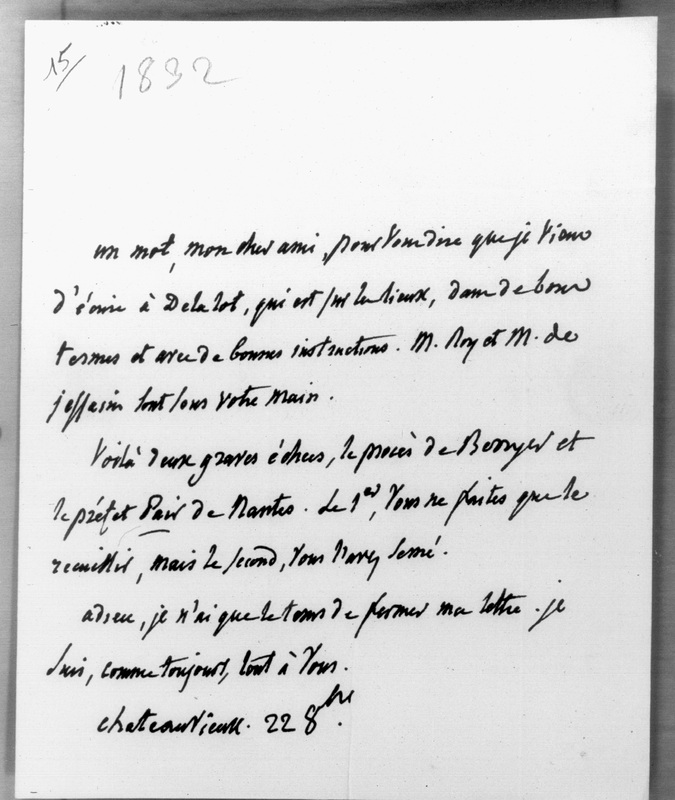 15/
1832
un mot, mon cher ami, pour vous dire que je viens
d'écrire à Delalot, qui est sur les lieux, dans de bons
termes et avec de bonnes instructions. M. Roy et M. de
jessaint sont sous votre main.
Voilà deux graves échecs, le procès de Berryer et
le préfet Pair de Nantes. Le 1er, vous ne faites que le
recueillir, mais le second, vous l'avez semé.
adieu, je n'ai que le tems de fermer ma lettre. je
suis, comme toujours, tout à vous.
chateauvieux. 22 8bre.